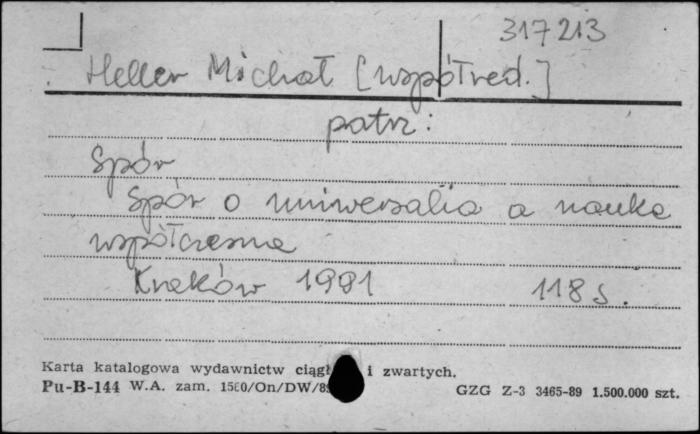 317213
Heller Michał [współred.]
patrz:
Spór
Spór o uniwersalia a nauka
współczesna
Kraków 1991 118 s.
Karta katalogowa wydawnictw i zwartych.
Pu-B-144 W.A. zam. GZG Z-3 3465-89 1.500.000 szt.